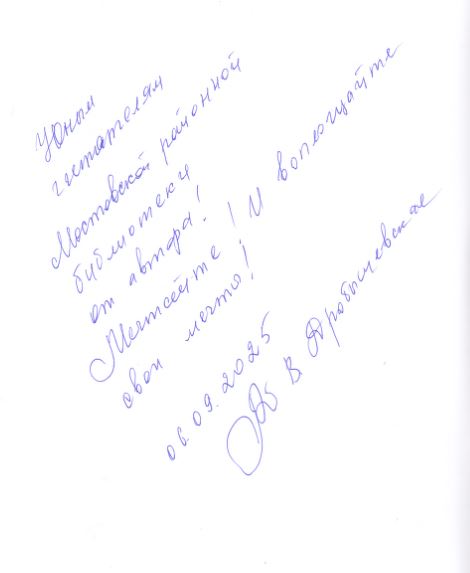 Юным
читателям
Мостовской районной
библиотеки
от автора!
Мечтайте! И воплощайте
свои мечты!
06.09.2025
В. Дробышевская